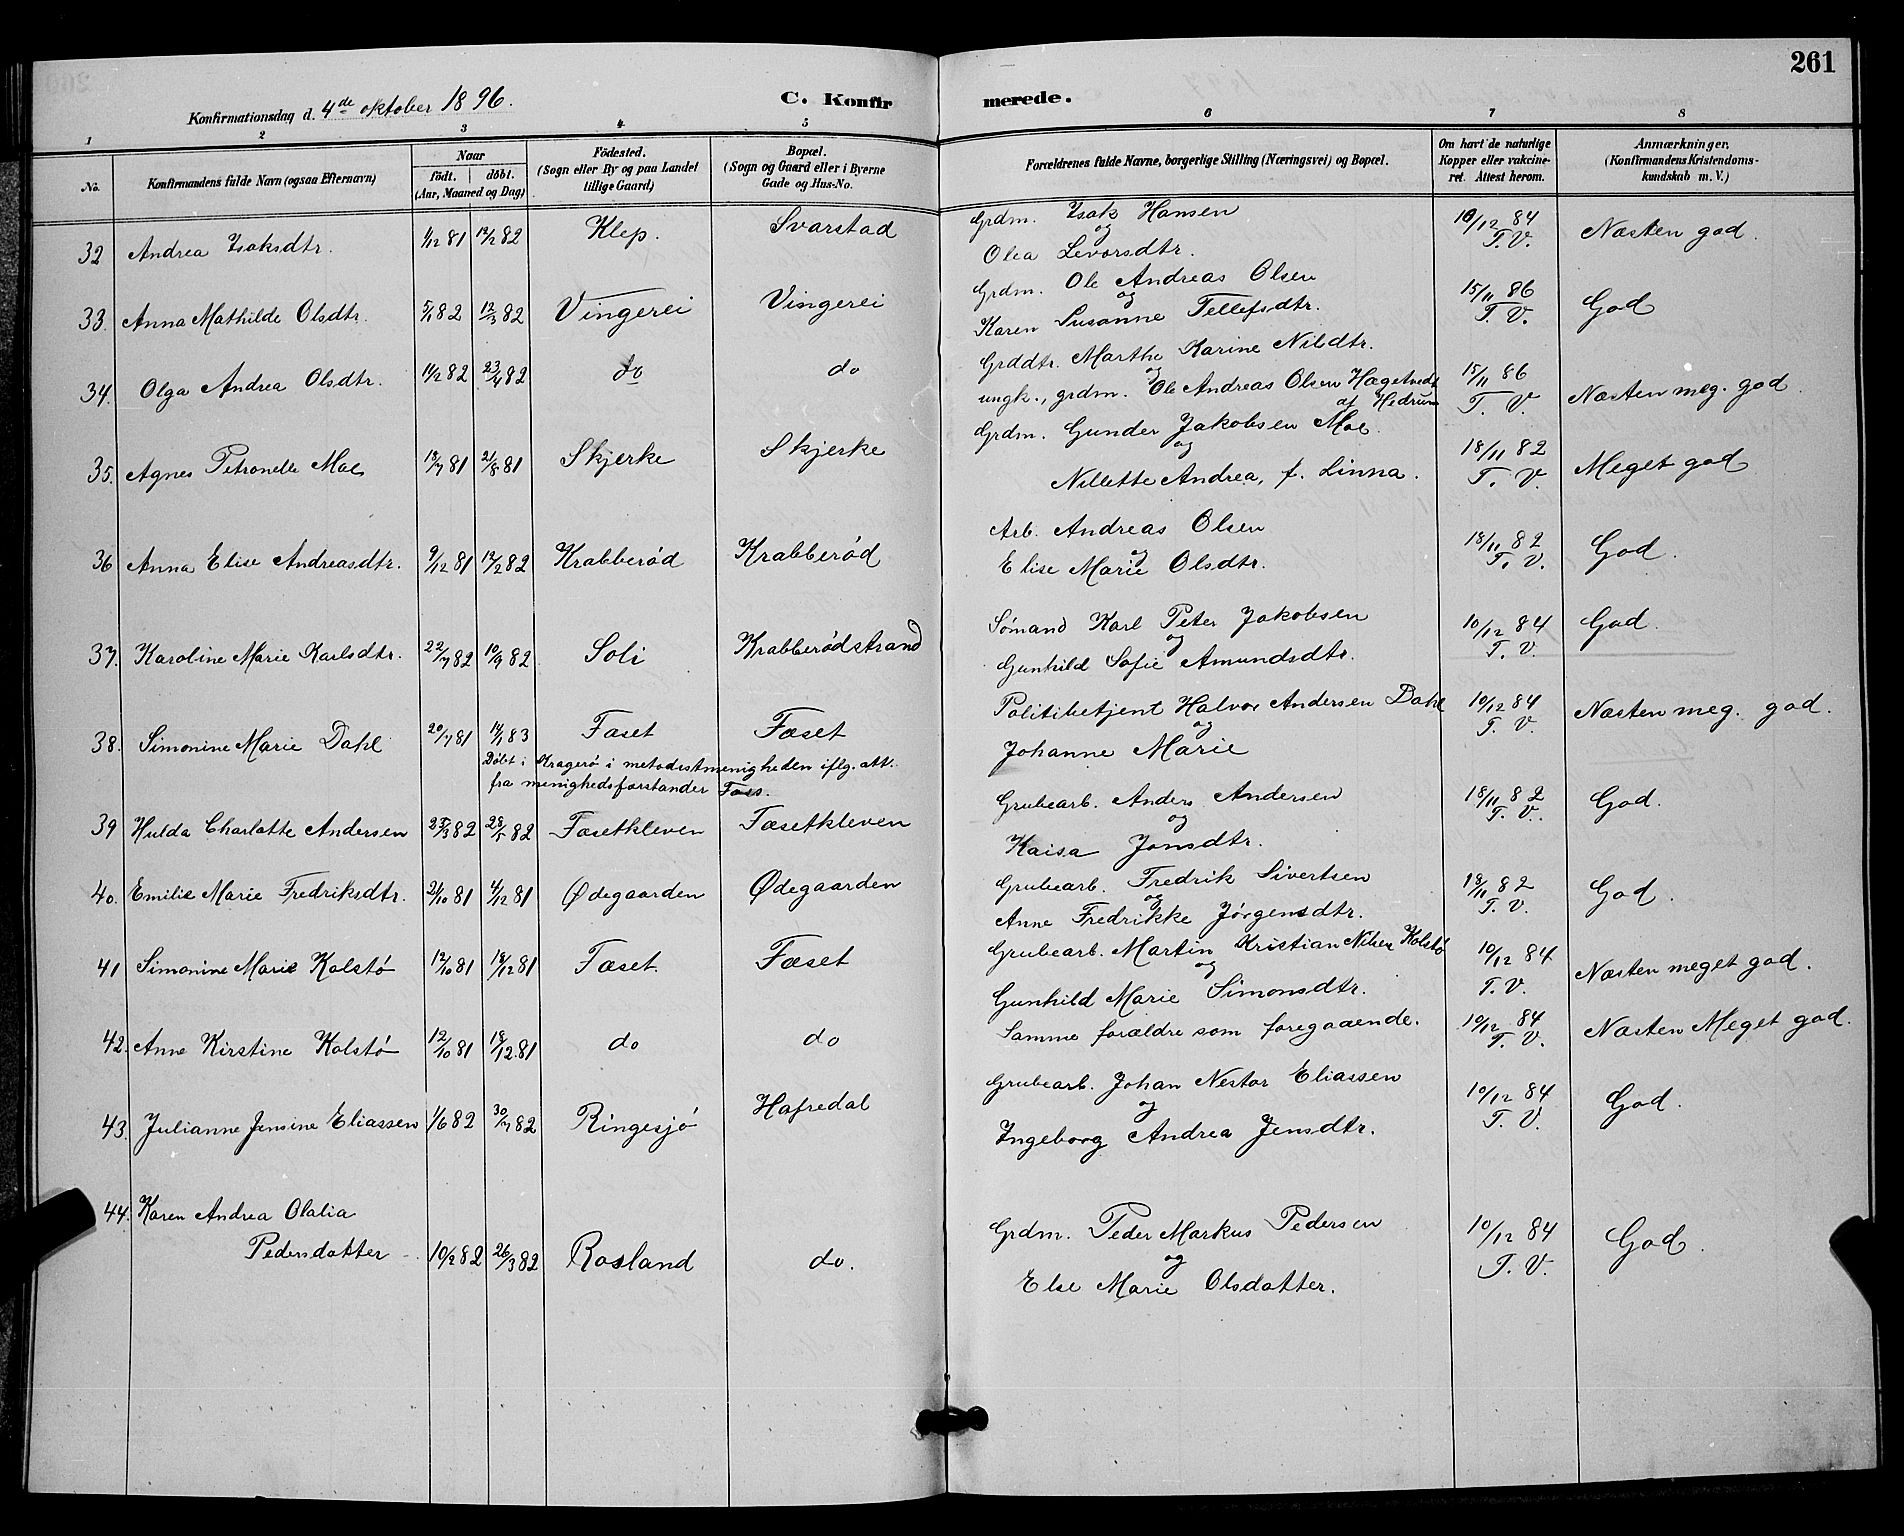 261
Konfirmationsdag d. 4de oktober 1896. C. Konfir merede.
1 2 3 4 5 6 7 8
No. Konfirmandens fulde Navn (ogsaa Efternavn) Naar födt. döbt. (Aar, Maaned og Dag) Födested. (Sogn eller By og paa Landet tillige Gaard) Bopæl. (Sogn og Gaard eller i Byerne Gade og Hus-No. Forældrenes fulde Navne, borgerlige Stilling (Næringsvei) og Bopæl. Om havt de naturlige Kopper eller vakcineret. Attest herom. Anmærkninger, (Konfirmandens Kristendomskundskab m. V.)
32 Andrea Isaksdtr. 1/12 81 12/2 82 Klep. Svarstad Grdm. Isak Hansen 10/12 84
og T. V. Næsten god.
Olea Levorsdtr.
33. Anna Mathilde Olsdtr. 5/1 82 12/3 82 Vingerei Vingerei Grdm. Ole Andreas Olsen 15/11 86
og T. V. God
Karen Susanne Tellefsdtr.
34. Olga Andrea Olsdtr. 11/2 82 23/4 82 do do Grddtr. Marthe Karine Nilsdtr. 15/11 86
og T. V. Næsten meg. god.
ungk., grdm. Ole Andreas Olsen Hagetvedt
af Hedrum
35. Agnes Petronelle Moe 18/7 81 21/8 81 Skjerke Skjerke Grdm. Gunder Jakobsen Moe. 18/11 82
og T. V. Meget god
Nillette Andrea, f. Linna.
36 Anna Elise Andreasdtr. 9/12 81 12/2 82 Krabberød Krabberød Arb. Andreas Olsen 18/11 82
og T. V. God.
Elise Marie Olsdtr.
37. Karoline Marie Karlsdtr. 22/7 82 10/9 82 Soli Krabberødstrand Sømand Karl Peter Jakobsen 10/12 84 God.
og T. V.
Gunhild Sofie Amundsdtr.
38. Simonine Marie Dahl 20/7 81 11/1 83 Fæset Fæset Politibetjent Halvor Andersen Dahl 10/12 84 Næsten meg. god.
og T. V.
Johanne Marie
Döbt i Kragerø i metodistmenigheden iflg. att.
fra menighedsforstander
39 Hulda Charlotte Andersen 25/3 82 28/5 82 Fæsetkleven Fæsetkleven Grubearb. Anders Andersen 18/11 82 God.
og T. V.
Kaisa Jonsdtr.
40. Emilie Marie Fredriksdtr. 21/10 81 4/12 81 Ødegaarden Ødegaarden Grubearb. Fredrik Sivertsen 18/11 82 God.
og T. V.
Anne Fredrikke Jørgensdtr.
41 Simonine Marie Kolstø 12/10 81 18/12 81 Fæset. Fæset Grubearb. Martin Kristian Nilsen Kolstø 10/12 84
og T. V. Næsten meget god.
Gunhild Marie Simonsdtr.
42. Anne Kirstine Kolstø 12/10 81 18/12 81 do do Samme forældre som foregaaende. 10/12 84 Næsten Meget god.
T. V.
43. Julianne Jensine Eliassen 1/6 82 30/7 82 Ringesjø Hafredal Grubearb. Johan Nestor Eliassen 10/12 84 God.
og T. V.
Ingeborg Andrea Jensdtr.
44. Karen Andrea Olalia
Pedersdatter 10/2 82 26/3 82 Rosland do. Grdm. Peder Markus Pedersen 10/12 84 God.
og T. V.
Else Marie Olsdatter.